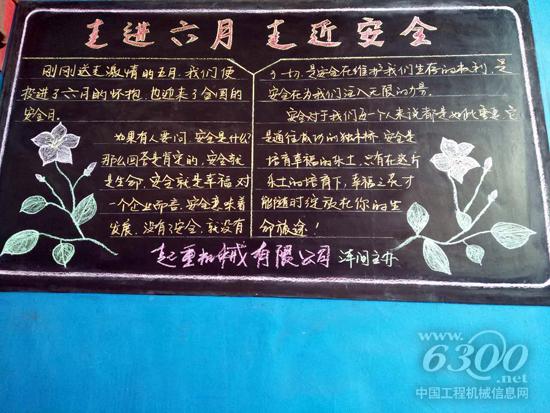 走进六月 走近安全
刚刚送走激情的五月,我们便
投进了六月的怀抱,也迎来了全国的
安全月。
如果有人要问,安全是什么?
那么回答是肯定的,安全就
是生命,安全就是幸福,对
一个企业而言,安全意味着
发展,没有了安全,就没有
了一切,是安全在维护我们生存的权利,是
安全在为我们注入无限的力量。
安全对于我们每一个人来说都是如此重要,它
是通往成功的独木桥,安全是
培育幸福的乐土,只有在这片
乐土的培育下,幸福之花才
能随时绽放在你的生
命旅途!
起重机械有限公司 车间主办
www.6300.net
中国工程机械信息网